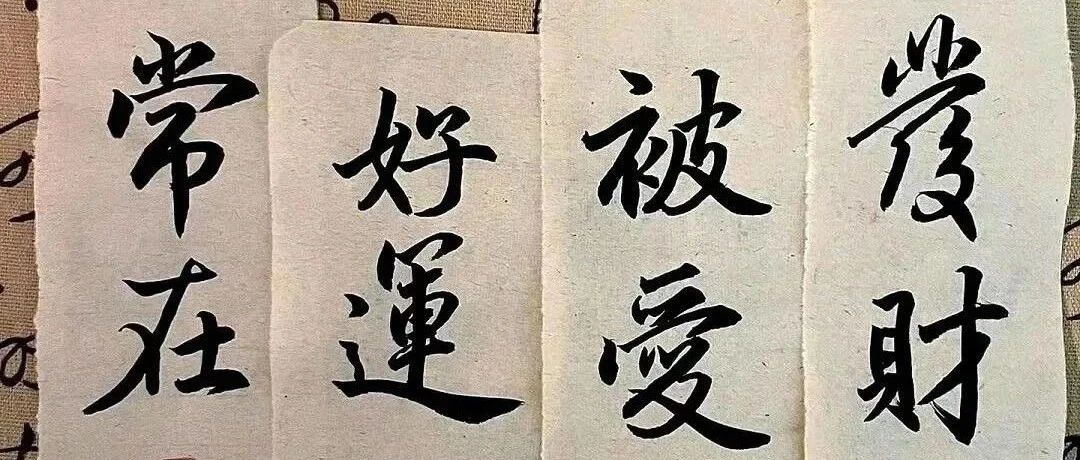 發財
被愛
好運
常在